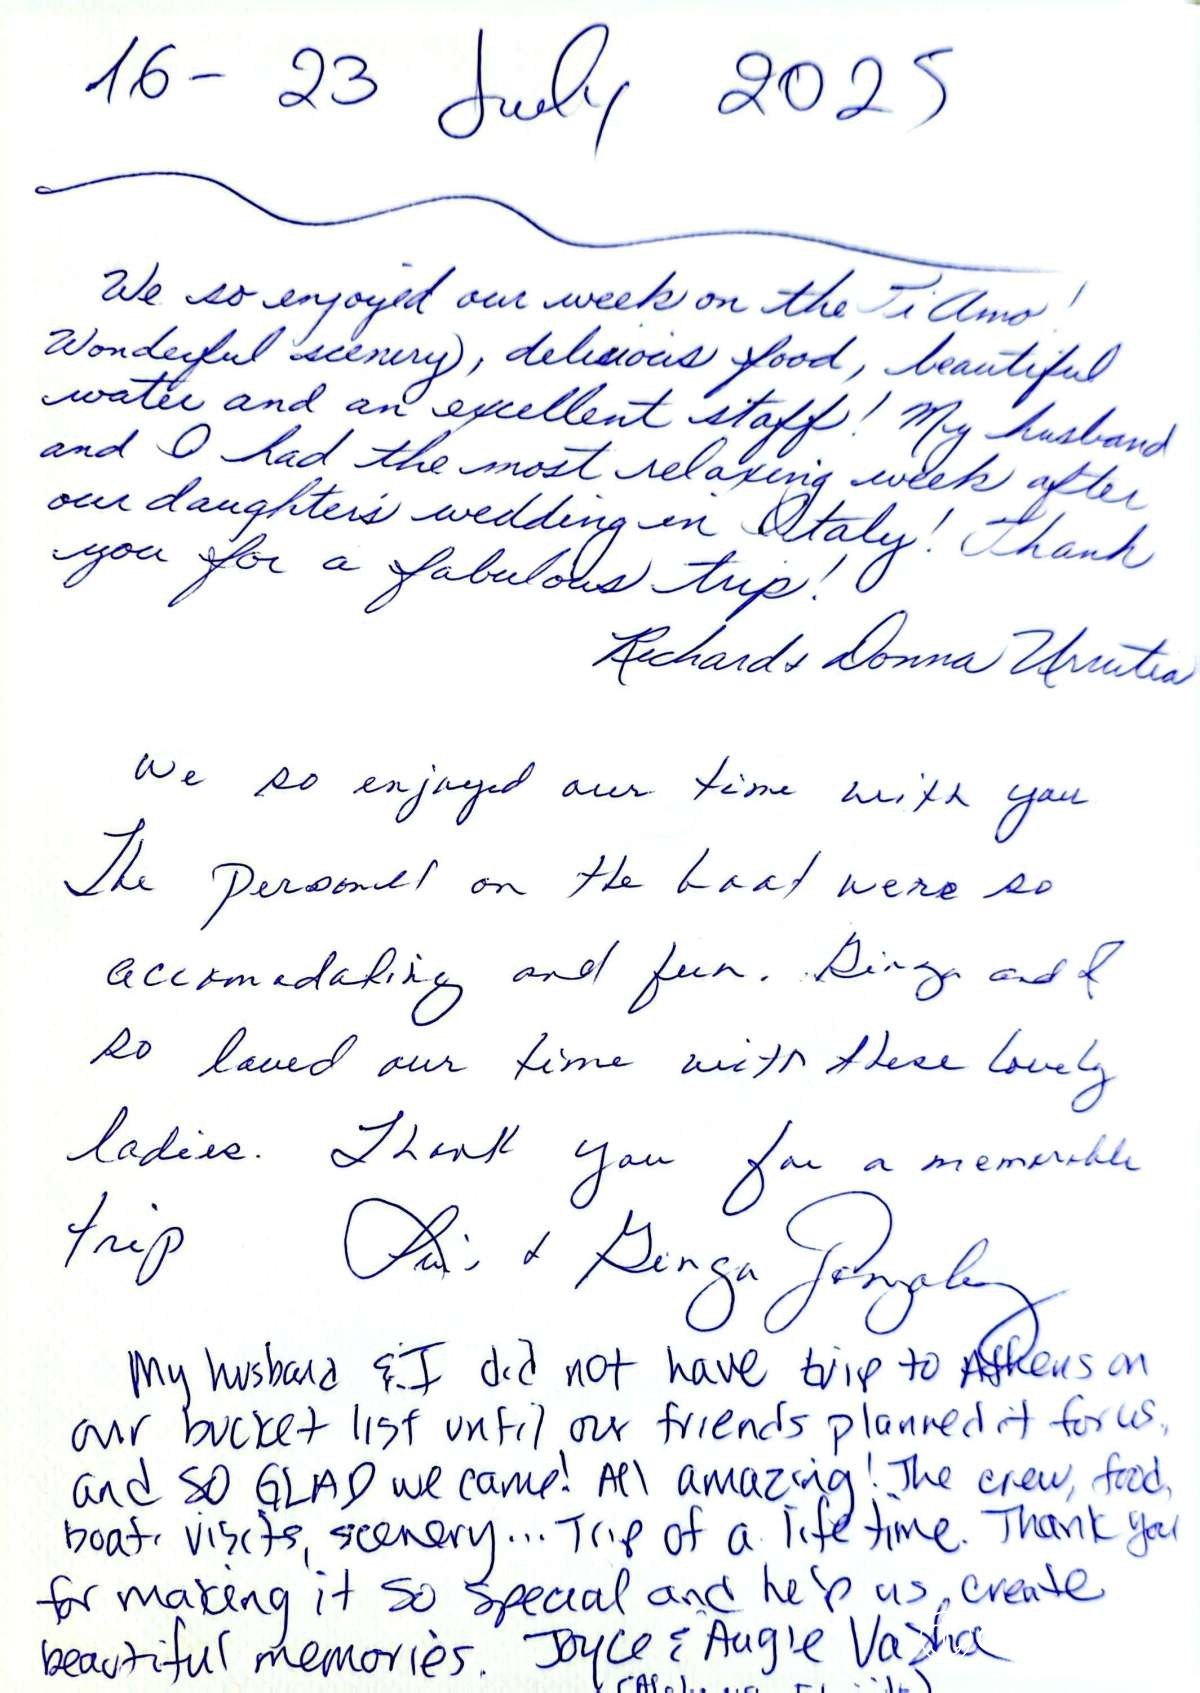 16 - 23 July 2025
We so enjoyed our week on the Ti Amo!
Wonderful scenery, delicious food, beautiful
water and an excellent staff! My husband
and I had the most relaxing week after
our daughter's wedding in Italy! Thank
you for a fabulous trip!
Richard & Donna Urrutia
We so enjoyed our time with you
The personel on the boat were so
accomodating and fun. Ginga and I
so loved our time with these lovely
ladies. Thank you for a memorable
trip Luis & Ginga Gonzalez
My husband & I did not have trip to Athens on
our bucket list until our friends planned it for us,
and SO GLAD we came! All amazing! The crew, food,
boat, visits, scenery... Trip of a life time. Thank you
for making it so special and help us create
beautiful memories. Joyce & Augie